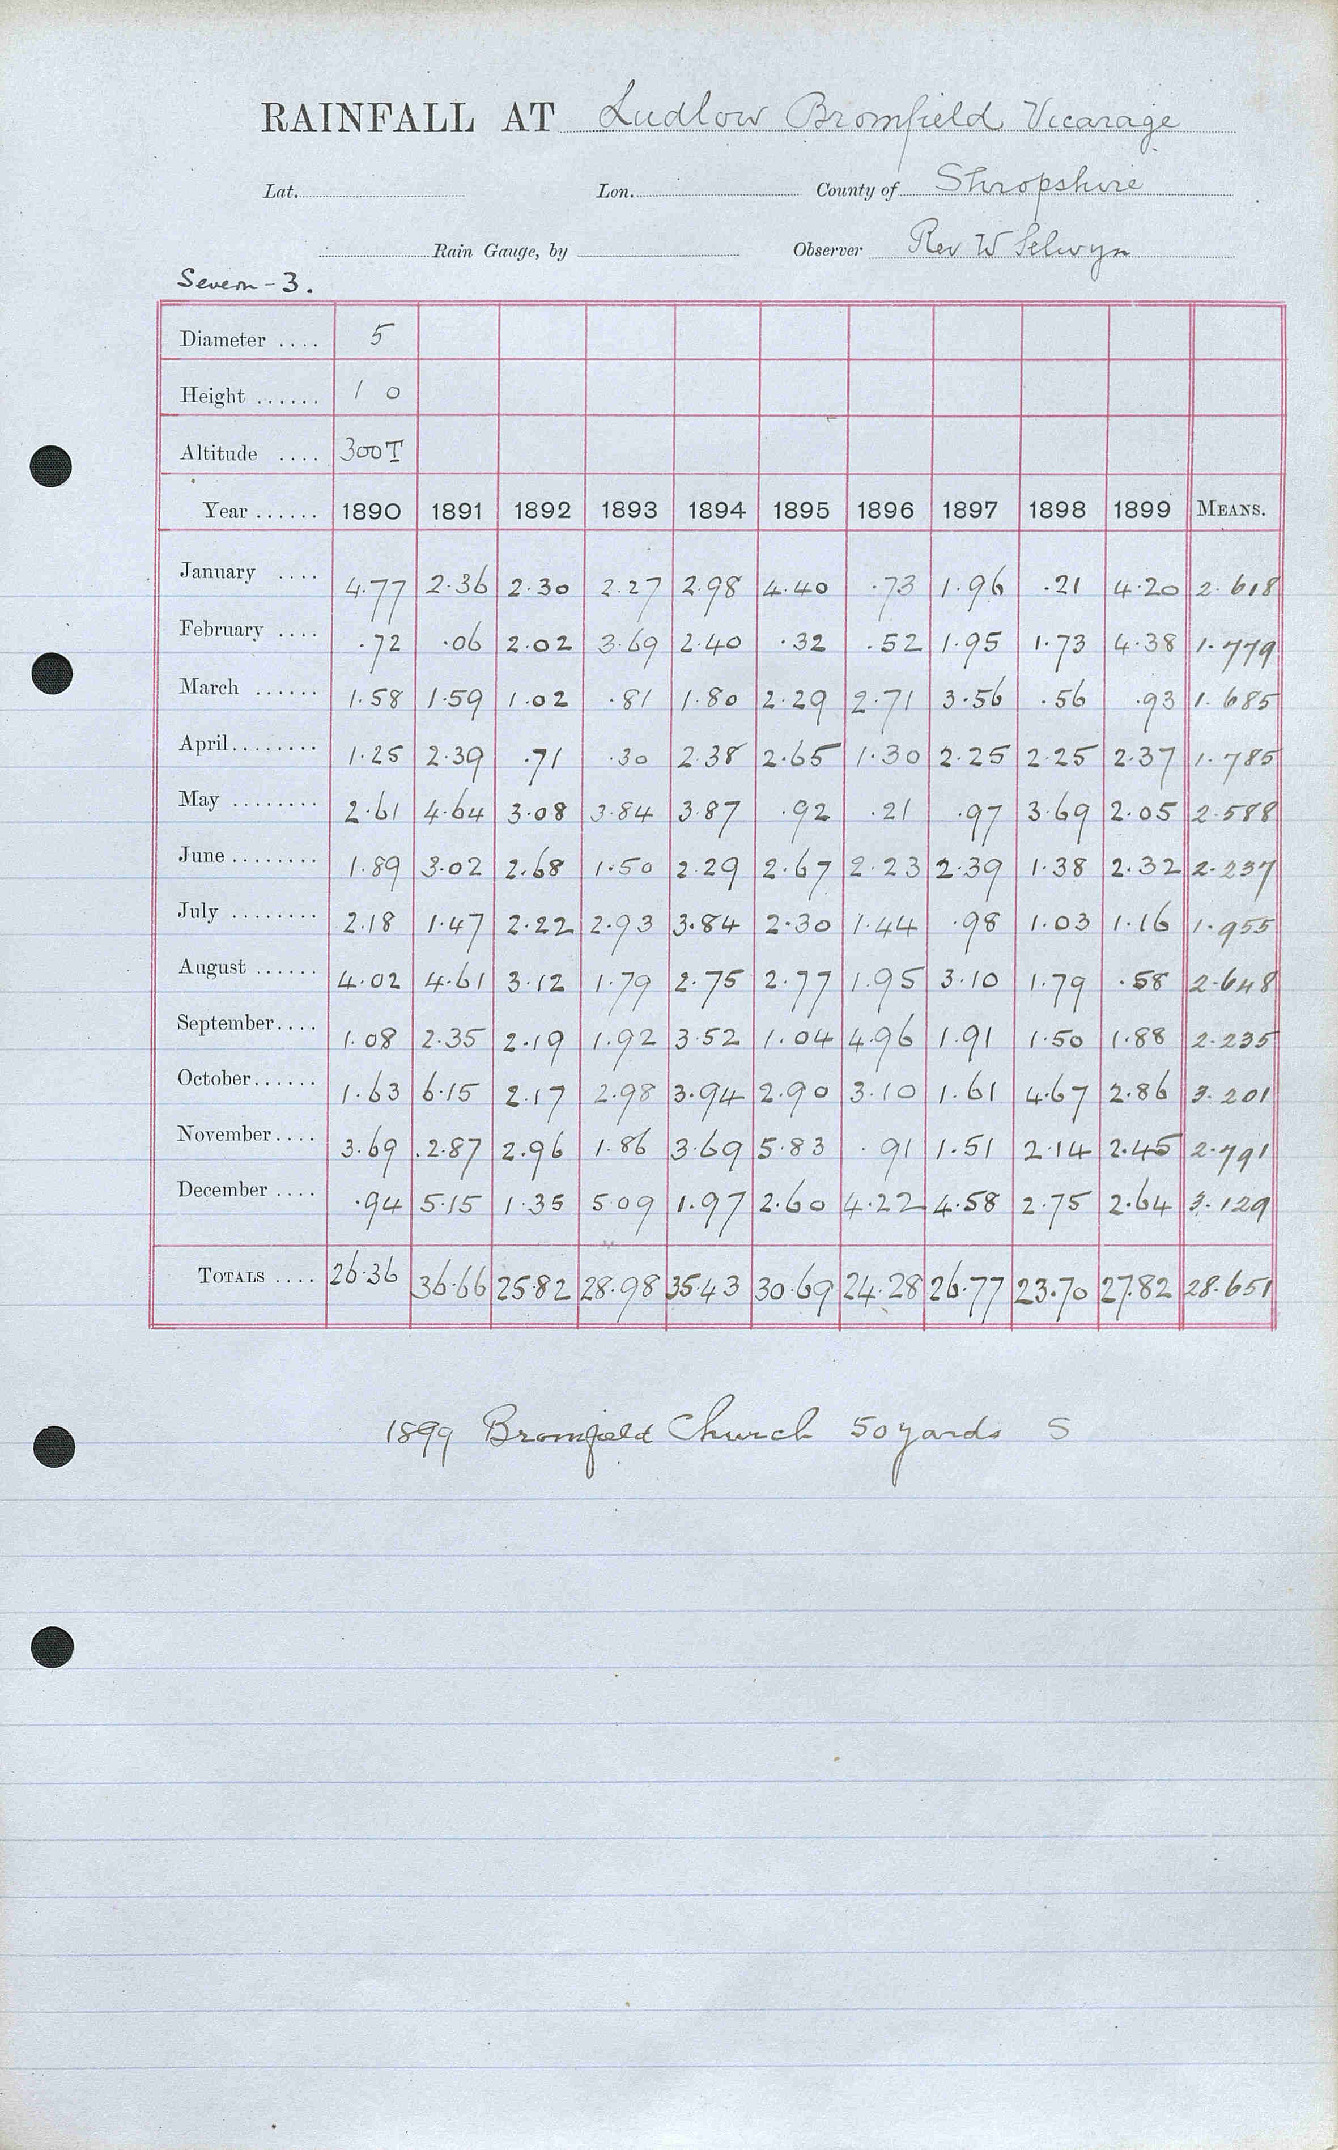 RAINFALL AT Ludlow Bromfield Vicarage
Lat. Lon. County of Shropshire
Rain Gauge, by Observer Rev W Selwyn
Severn - 3.
Diameter .... 5
Height ...... 1 0
Altitude .... 300T
Year ...... 1890 1891 1892 1893 1894 1895 1896 1897 1898 1899 MEANS.
January .... 4.77 2.36 2.30 2.27 2.98 4.40 .73 1.96 .21 4.20 2.618
February .... .72 .06 2.02 3.69 2.40 .32 .52 1.95 1.73 4.38 1.779
March ...... 1.58 1.59 1.02 .81 1.80 2.29 2.71 3.56 .56 .93 1.685
April........ 1.25 2.39 .71 .30 2.38 2.65 1.30 2.25 2.25 2.37 1.785
May ........ 2.61 4.64 3.08 3.84 3.87 .92 .21 .97 3.69 2.05 2.588
June ........ 1.89 3.02 2.68 1.50 2.29 2.67 2.23 2.39 1.38 2.32 2.237
July ........ 2.18 1.47 2.22 2.93 3.84 2.30 1.44 .98 1.03 1.16 1.955
August ...... 4.02 4.61 3.12 1.79 2.75 2.77 1.95 3.10 1.79 .58 2.648
September.... 1.08 2.35 2.19 1.92 3.52 1.04 4.96 1.91 1.50 1.88 2.235
October...... 1.63 6.15 2.17 2.98 3.94 2.90 3.10 1.61 4.67 2.86 3.201
November.... 3.69 .2.87 2.96 1.86 3.69 5.83 .91 1.51 2.14 2.45 2.791
December .... .94 5.15 1.35 5.09 1.97 2.60 4.22 4.58 2.75 2.64 3.129
TOTALS .... 26.36 36.66 25.82 28.98 35.43 30.69 24.28 26.77 23.70 27.82 28.651
1899 Bromfield Church 50 yards S